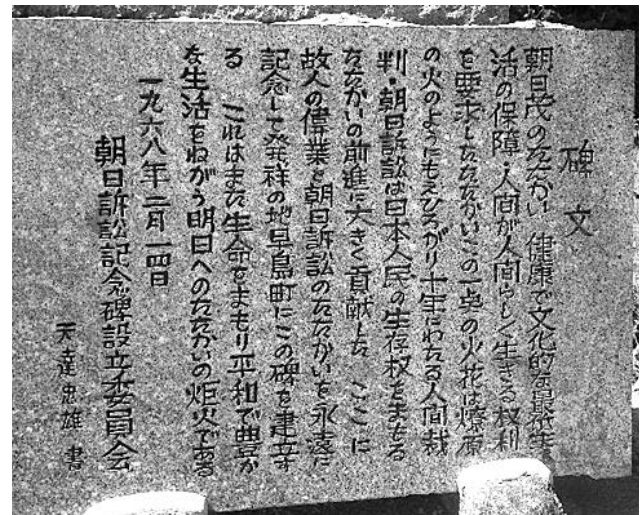 碑文
朝日茂のたたかい 健康で文化的な最低生
活の保障・人間が人間らしく生きる权利
を要求したたたかいこの一点の火花は燎原
の火のようにもえひろがり十年にわたる人间裁
判・朝日訴訟は日本人民の生存权をまもる
たたかいの前進に大きく貢献した ここに
故人の偉業と朝日訴訟のたたかいを永遠に
記念して発祥の地早島町にこの碑を建立す
る これはまた生命をまもり平和で豊か
な生活をねがう明日へのたたかいの炬火である
一九六八年二月一四日
朝日訴訟記念碑設立委員会
天達忠雄 書